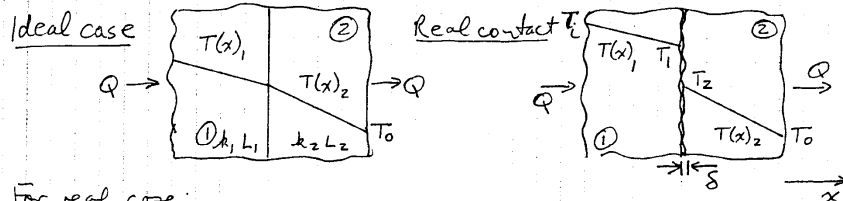 Ideal case
②
T(x)₁
T(x)₂
Q
Q
① k₁ L₁
k₂ L₂
T₀
Real contact
Tᵢ
T(x)₁
T₁
②
T₂
Q
Q
T(x)₂
T₀
①
δ
x
For real case: